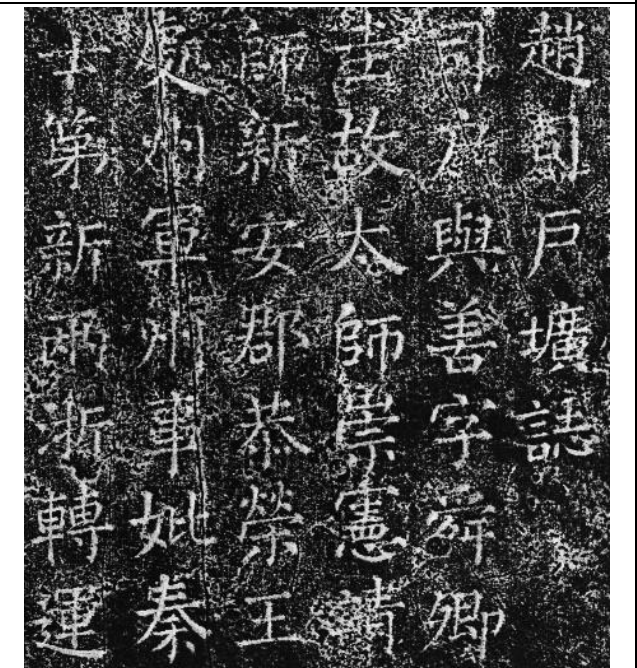 趙司戶壙誌
司戶與善字舜卿
故太師崇憲靖
師新安郡恭榮王
處州軍州事妣秦
士第新兩浙轉運